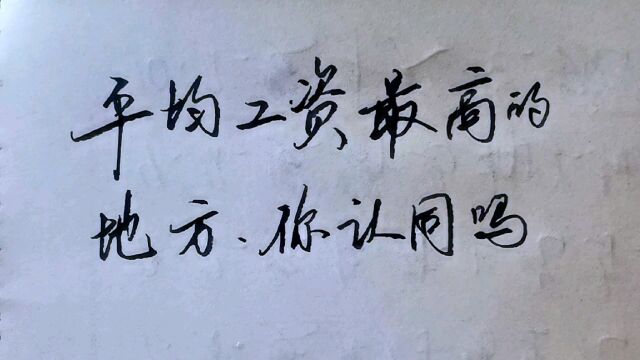 平均工资最高的
地方、你认同吗